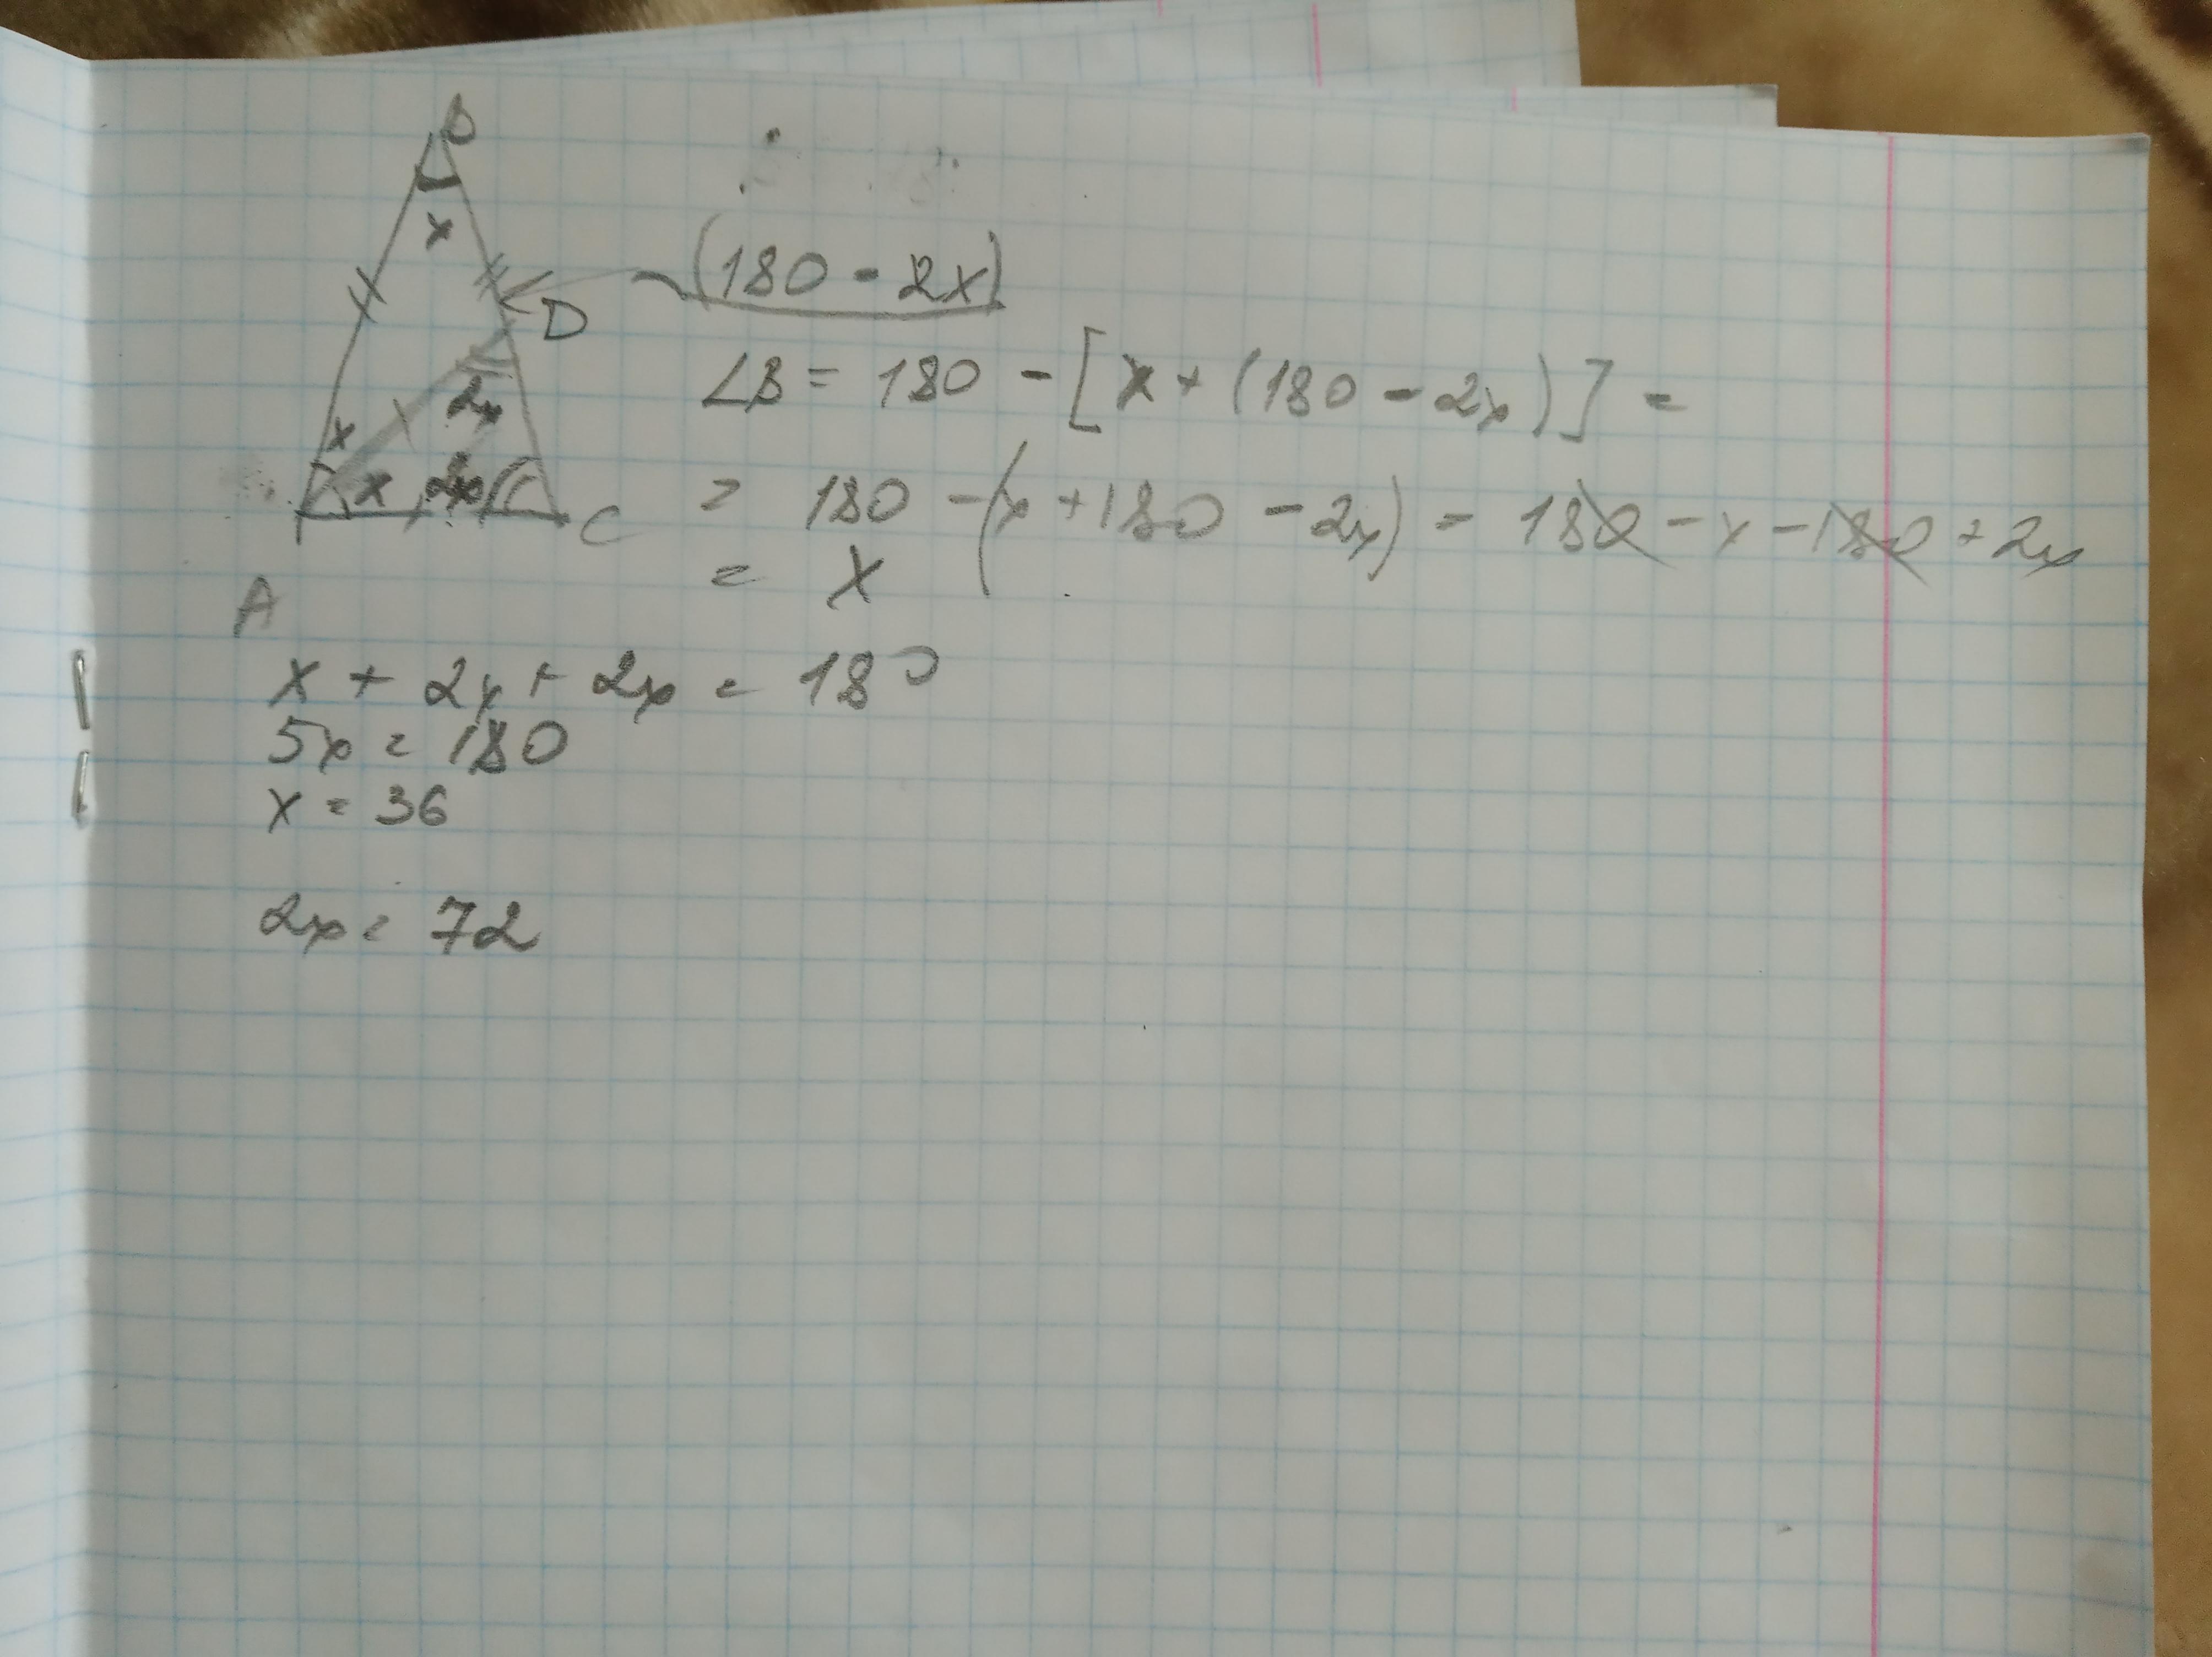 B
x
D
(180 - 2x)
∠B = 180 - [x + (180 - 2x)] =
2x
x
x 2x
C
= 180 - (x + 180 - 2x) = 180 - x - 180 + 2x
= x
A
x + 2x + 2x = 180
5x = 180
x = 36
2x = 72